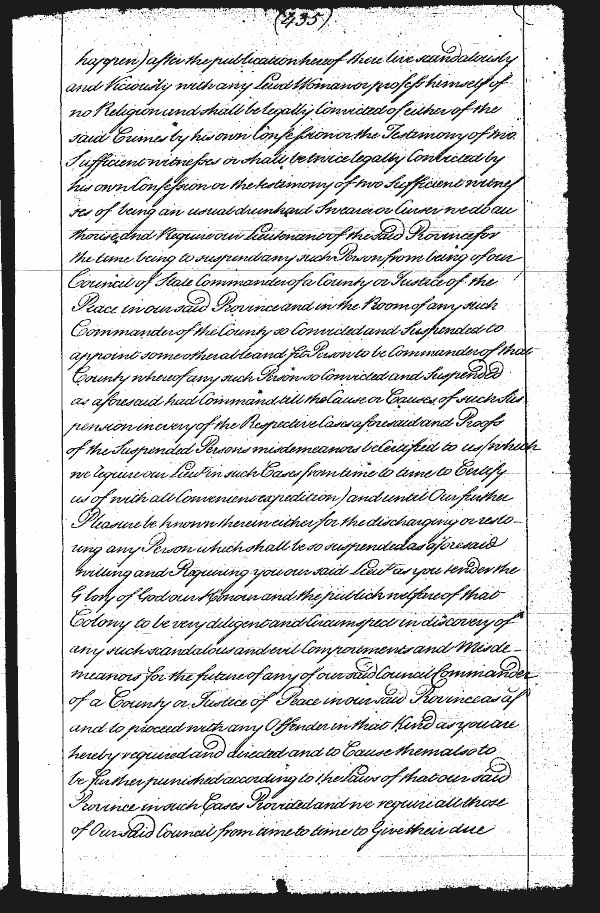 (435)
happen) after the publication hereof there live scandalously
and Viciously with any Lewd Woman or profess himself of
no Religion and shall be legally Convicted of either of the
said Crimes by his own Confession or the Testimony of two
Sufficient witnesses or shall be twice legally Convicted by
his own Confession or the testimony of two Sufficient witnes
ses of being an usual drunkard Swearer or Curser we do au
thorise and Require our Lieutenant of the said Province for
the time being to suspend any such Person from being of our
Council of State Commander of a County or Justice of the
Peace in our said Province and in the Room of any such
Commander of the County so Convicted and Suspended to
appoint some other able and fit Person to be Commander of that
County whereof any such Person so Convicted and Suspended
as aforesaid had Command till the Cause or Causes of such Sus
pension in every of the Respective Cases aforesaid and Proofs
of the Suspended Persons misdemeanors be Certified to us (which
we require our Lieut in such Cases from time to time to Certify
us of with all Convenient expedition) and until Our further
Pleasure be known therein either for the discharging or resto-
ring any Person which shall be so suspended as aforesaid
willing and Requiring you our said Lieut as you tender the
Glory of God our Honour and the publick welfare of that
Colony to be very diligent and Circumspect in discovery of
any such scandalous and evil Comportments and Misde-
meanors for the future of any of our said Council Commander
of a County or Justice of Peace in our said Province as afs
and to proceed with any Offender in that Kind as you are
hereby required and directed and to Cause them also to
be further punished according to the Laws of that our said
Province in such Cases Provided and we require all those
of Our said Council from time to time to Give their due